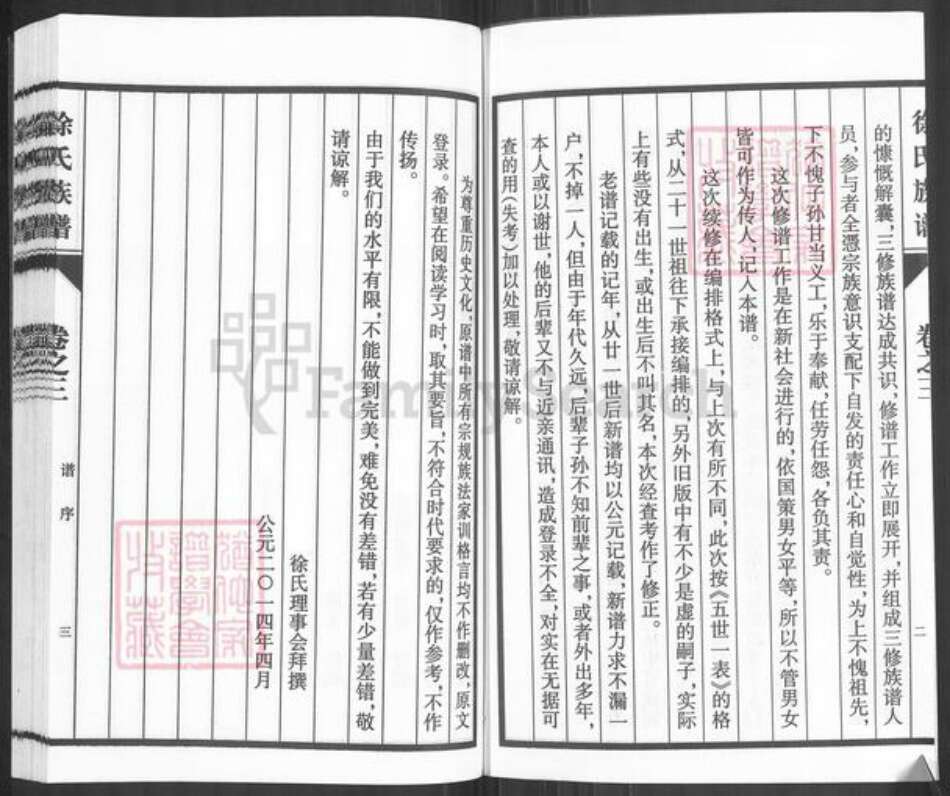 徐氏族谱
卷之三
二
的慷慨解囊,三修族谱达成共识,修谱工作立即展开,并组成三修族谱人
员,参与者全凭宗族意识支配下自发的责任心和自觉性,为上不愧祖先,
下不愧子孙甘当义工,乐于奉献,任劳任怨,各负其责。
这次修谱工作是在新社会进行的,依国策男女平等,所以不管男女
皆可作为传人,记入本谱。
这次续修在编排格式上,与上次有所不同,此次按《五世一表》的格
式,从二十一世祖往下承接编排的,另外旧版中有不少是虚的嗣子,实际
上有些没有出生,或出生后不叫其名,本次经查考作了修正。
老谱记载的记年,从廿一世后新谱均以公元记载,新谱力求不漏一
户,不掉一人,但由于年代久远,后辈子孙不知前辈之事,或者外出多年,
本人或以谢世,他的后辈又不与近亲通讯,造成登录不全,对实在无据可
查的用(失考)加以处理,敬请谅解。
为尊重历史文化,原谱中所有宗规族法家训格言均不作删改,原文
登录。希望在阅读学习时,取其要旨,不符合时代要求的,仅作参考,不作
传扬。
由于我们的水平有限,不能做到完美,难免没有差错,若有少量差错,敬
请谅解。
徐氏理事会拜撰
公元二〇一四年四月
徐氏族谱
卷之三
谱序
三
FamilySearch